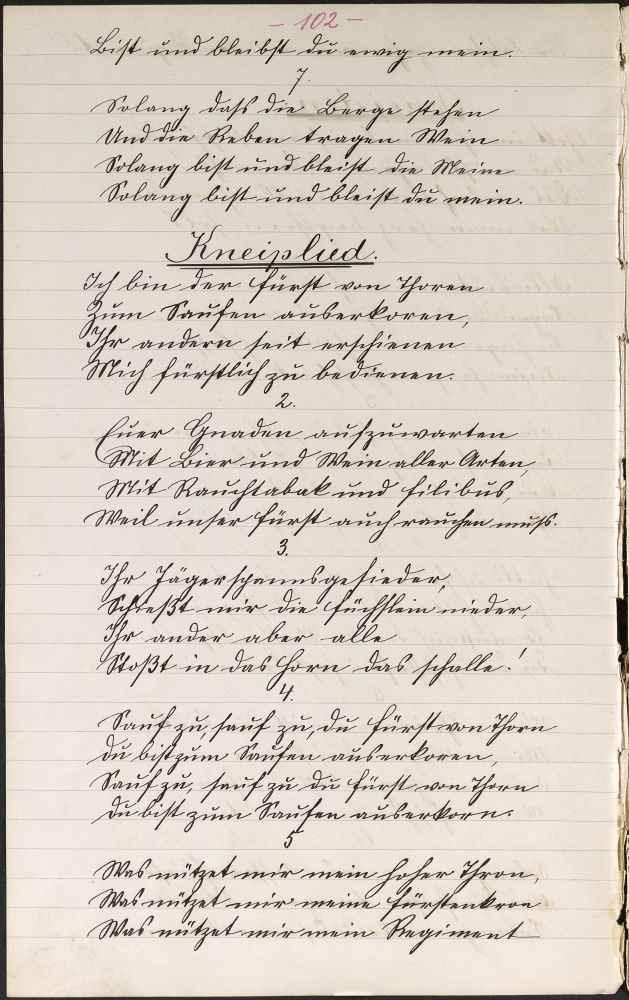 - 102 -
Bist und bleibst du ewig mein.
7.
Solang dass die Berge stehen
Und die Reben tragen Wein
Solang bist und bleist die Meine
Solang bist und bleist du mein.
Kneiplied.
Ich bin der Fürst von Thoren
Zum Saufen auserkoren,
Ihr andern seit erschienen
Mich fürstlich zu bedienen.
2.
Euer Gnaden aufzuwarten
Mit Bier und Wein aller Arten,
Mit Rauchtabak und Filibus,
Weil unser Fürst auch rauchen muss.
3.
Ihr Jäger spannt gefieder,
Schießt mir die Füchslein nieder,
Ihr ander aber alle
Stoßt in das Horn das schalle!
4.
Sauf zu, sauf zu, du Fürst von Thorn
du bist zum Saufen auserkoren,
Sauf zu, sauf zu du Fürst von Thorn
du bist zum Saufen auserkorn.
5
Was nützet mir mein hoher Thron,
Was nützet mir meine Fürstenkron
Was nützet mir mein Regiment